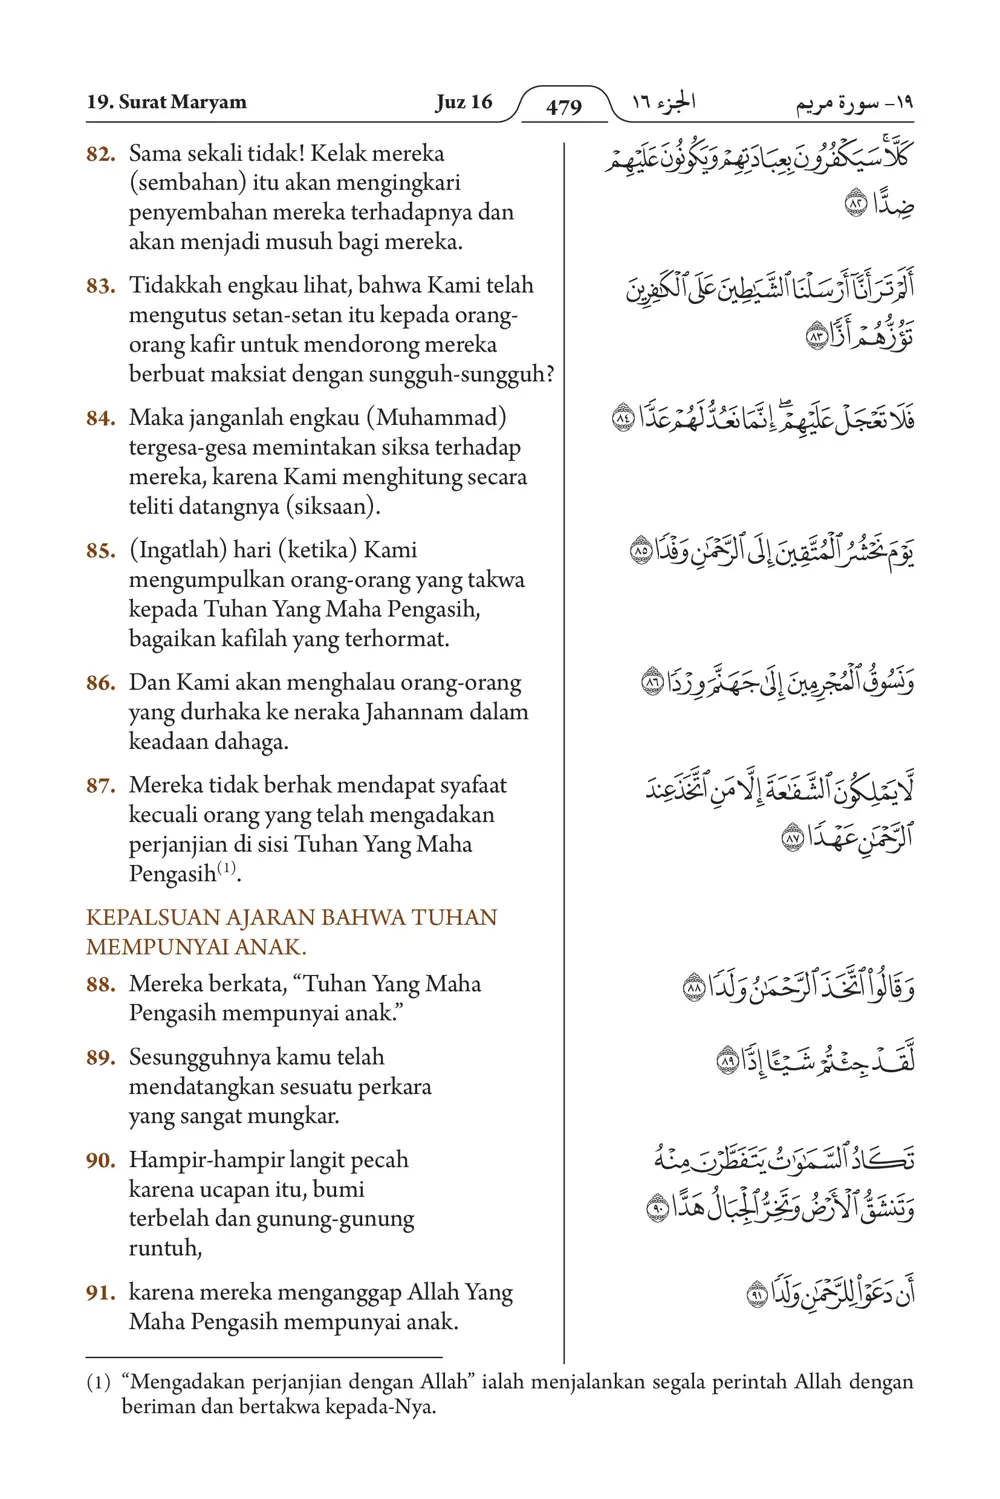 19. Surat Maryam Juz 16 479 الجزء ١٦ ١٩- سورة مريم
82. Sama sekali tidak! Kelak mereka
(sembahan) itu akan mengingkari
penyembahan mereka terhadapnya dan
akan menjadi musuh bagi mereka.
83. Tidakkah engkau lihat, bahwa Kami telah
mengutus setan-setan itu kepada orang-
orang kafir untuk mendorong mereka
berbuat maksiat dengan sungguh-sungguh?
84. Maka janganlah engkau (Muhammad)
tergesa-gesa memintakan siksa terhadap
mereka, karena Kami menghitung secara
teliti datangnya (siksaan).
85. (Ingatlah) hari (ketika) Kami
mengumpulkan orang-orang yang takwa
kepada Tuhan Yang Maha Pengasih,
bagaikan kafilah yang terhormat.
86. Dan Kami akan menghalau orang-orang
yang durhaka ke neraka Jahannam dalam
keadaan dahaga.
87. Mereka tidak berhak mendapat syafaat
kecuali orang yang telah mengadakan
perjanjian di sisi Tuhan Yang Maha
Pengasih(1).
KEPALSUAN AJARAN BAHWA TUHAN
MEMPUNYAI ANAK.
88. Mereka berkata, “Tuhan Yang Maha
Pengasih mempunyai anak.”
89. Sesungguhnya kamu telah
mendatangkan sesuatu perkara
yang sangat mungkar.
90. Hampir-hampir langit pecah
karena ucapan itu, bumi
terbelah dan gunung-gunung
runtuh,
91. karena mereka menganggap Allah Yang
Maha Pengasih mempunyai anak.
كَلَّاۚ سَيَكْفُرُونَ بِعِبَادَتِهِمْ وَيَكُونُونَ عَلَيْهِمْ
ضِدًّا ٨٢
أَلَمْ تَرَ أَنَّآ أَرْسَلْنَا ٱلشَّيَٰطِينَ عَلَى ٱلْكَٰفِرِينَ
تَؤُزُّهُمْ أَزًّا ٨٣
فَلَا تَعْجَلْ عَلَيْهِمْۖ إِنَّمَا نَعُدُّ لَهُمْ عَدًّا ٨٤
يَوْمَ نَحْشُرُ ٱلْمُتَّقِينَ إِلَى ٱلرَّحْمَٰنِ وَفْدًا ٨٥
وَنَسُوقُ ٱلْمُجْرِمِينَ إِلَىٰ جَهَنَّمَ وِرْدًا ٨٦
لَّا يَمْلِكُونَ ٱلشَّفَٰعَةَ إِلَّا مَنِ ٱتَّخَذَ عِندَ
ٱلرَّحْمَٰنِ عَهْدًا ٨٧
وَقَالُوا۟ ٱتَّخَذَ ٱلرَّحْمَٰنُ وَلَدًا ٨٨
لَّقَدْ جِئْتُمْ شَيْـًٔا إِدًّا ٨٩
تَكَادُ ٱلسَّمَٰوَٰتُ يَتَفَطَّرْنَ مِنْهُ
وَتَنشَقُّ ٱلْأَرْضُ وَتَخِرُّ ٱلْجِبَالُ هَدًّا ٩٠
أَن دَعَوْا۟ لِلرَّحْمَٰنِ وَلَدًا ٩١
(1) “Mengadakan perjanjian dengan Allah” ialah menjalankan segala perintah Allah dengan
beriman dan bertakwa kepada-Nya.